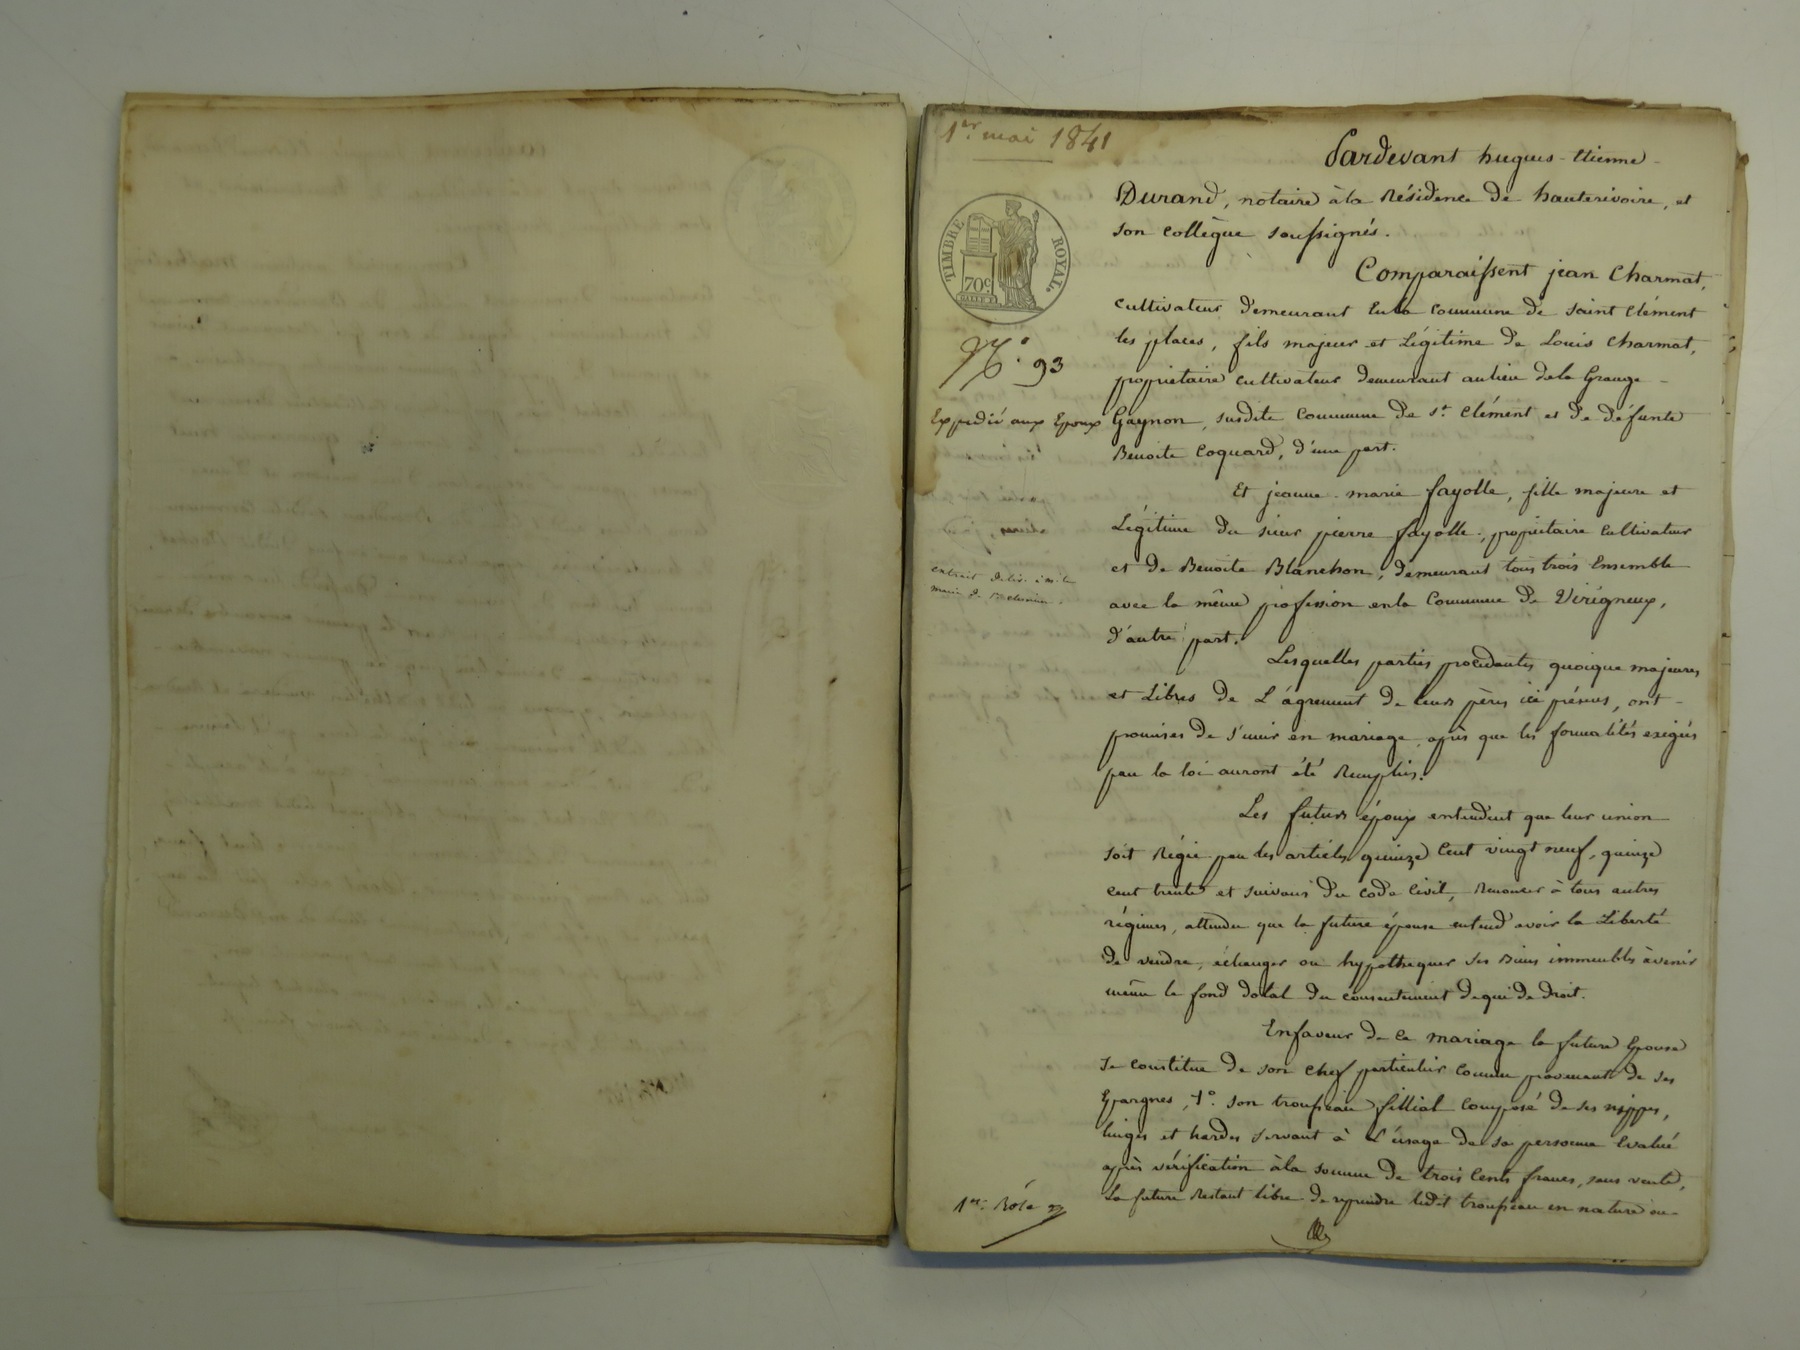 1er mai 1841
TIMBRE ROYAL.
70c
N° 93
Expedié aux Epoux
extrait
mairie de St clément
Pardevant hugues-Etienne
Durand, notaire à la Résidence de hauterivoire, et
son collègue soussignés.
Comparaissent jean Charmat,
cultivateur demeurant En la commune de saint Clément
les places, fils majeur et Légitime de Louis Charmat,
propriétaire cultivateur demeurant au lieu de la Grange
Gaynon, susdite commune de St Clément et de défunte
Benoite Coquard, d'une part.
Et jeanne-marie fayolle, fille majeure et
Légitime du sieur pierre fayolle, propriétaire cultivateur
et de Benoite Blanchon, demeurant tous trois Ensemble
avec la même profession en la Commune de Virigneux,
d'autre part.
Lesquelles parties procédantes quoique majeures
et Libres de L'agrément de leurs pères ici présens, ont
promises de s'unir en mariage après que les formalités exigées
par la loi auront été Remplies.
Les futurs époux entendent que leur union
soit Régie par les articles quinze Cent vingt neuf, quinze
cent trente et suivans du code Civil, Renoncer à tous autres
régimes, attendu que la future épouse entend avoir la Liberté
de vendre, échanger ou hypothequer ses Biens immeubles à venir
même le fond dotal du consentement de qui de droit.
En faveur de ce mariage la future Epouse
se constitue de son chef particulier comme provenant de ses
Epargnes, 1° son trousseau fillial composé de ses nippes,
linges et hardes servant à L'usage de sa personne Evalué
après vérification à la somme de trois Cents francs, sans vente,
La future Restant libre de reprendre ledit trousseau en nature ou
1er Rôle